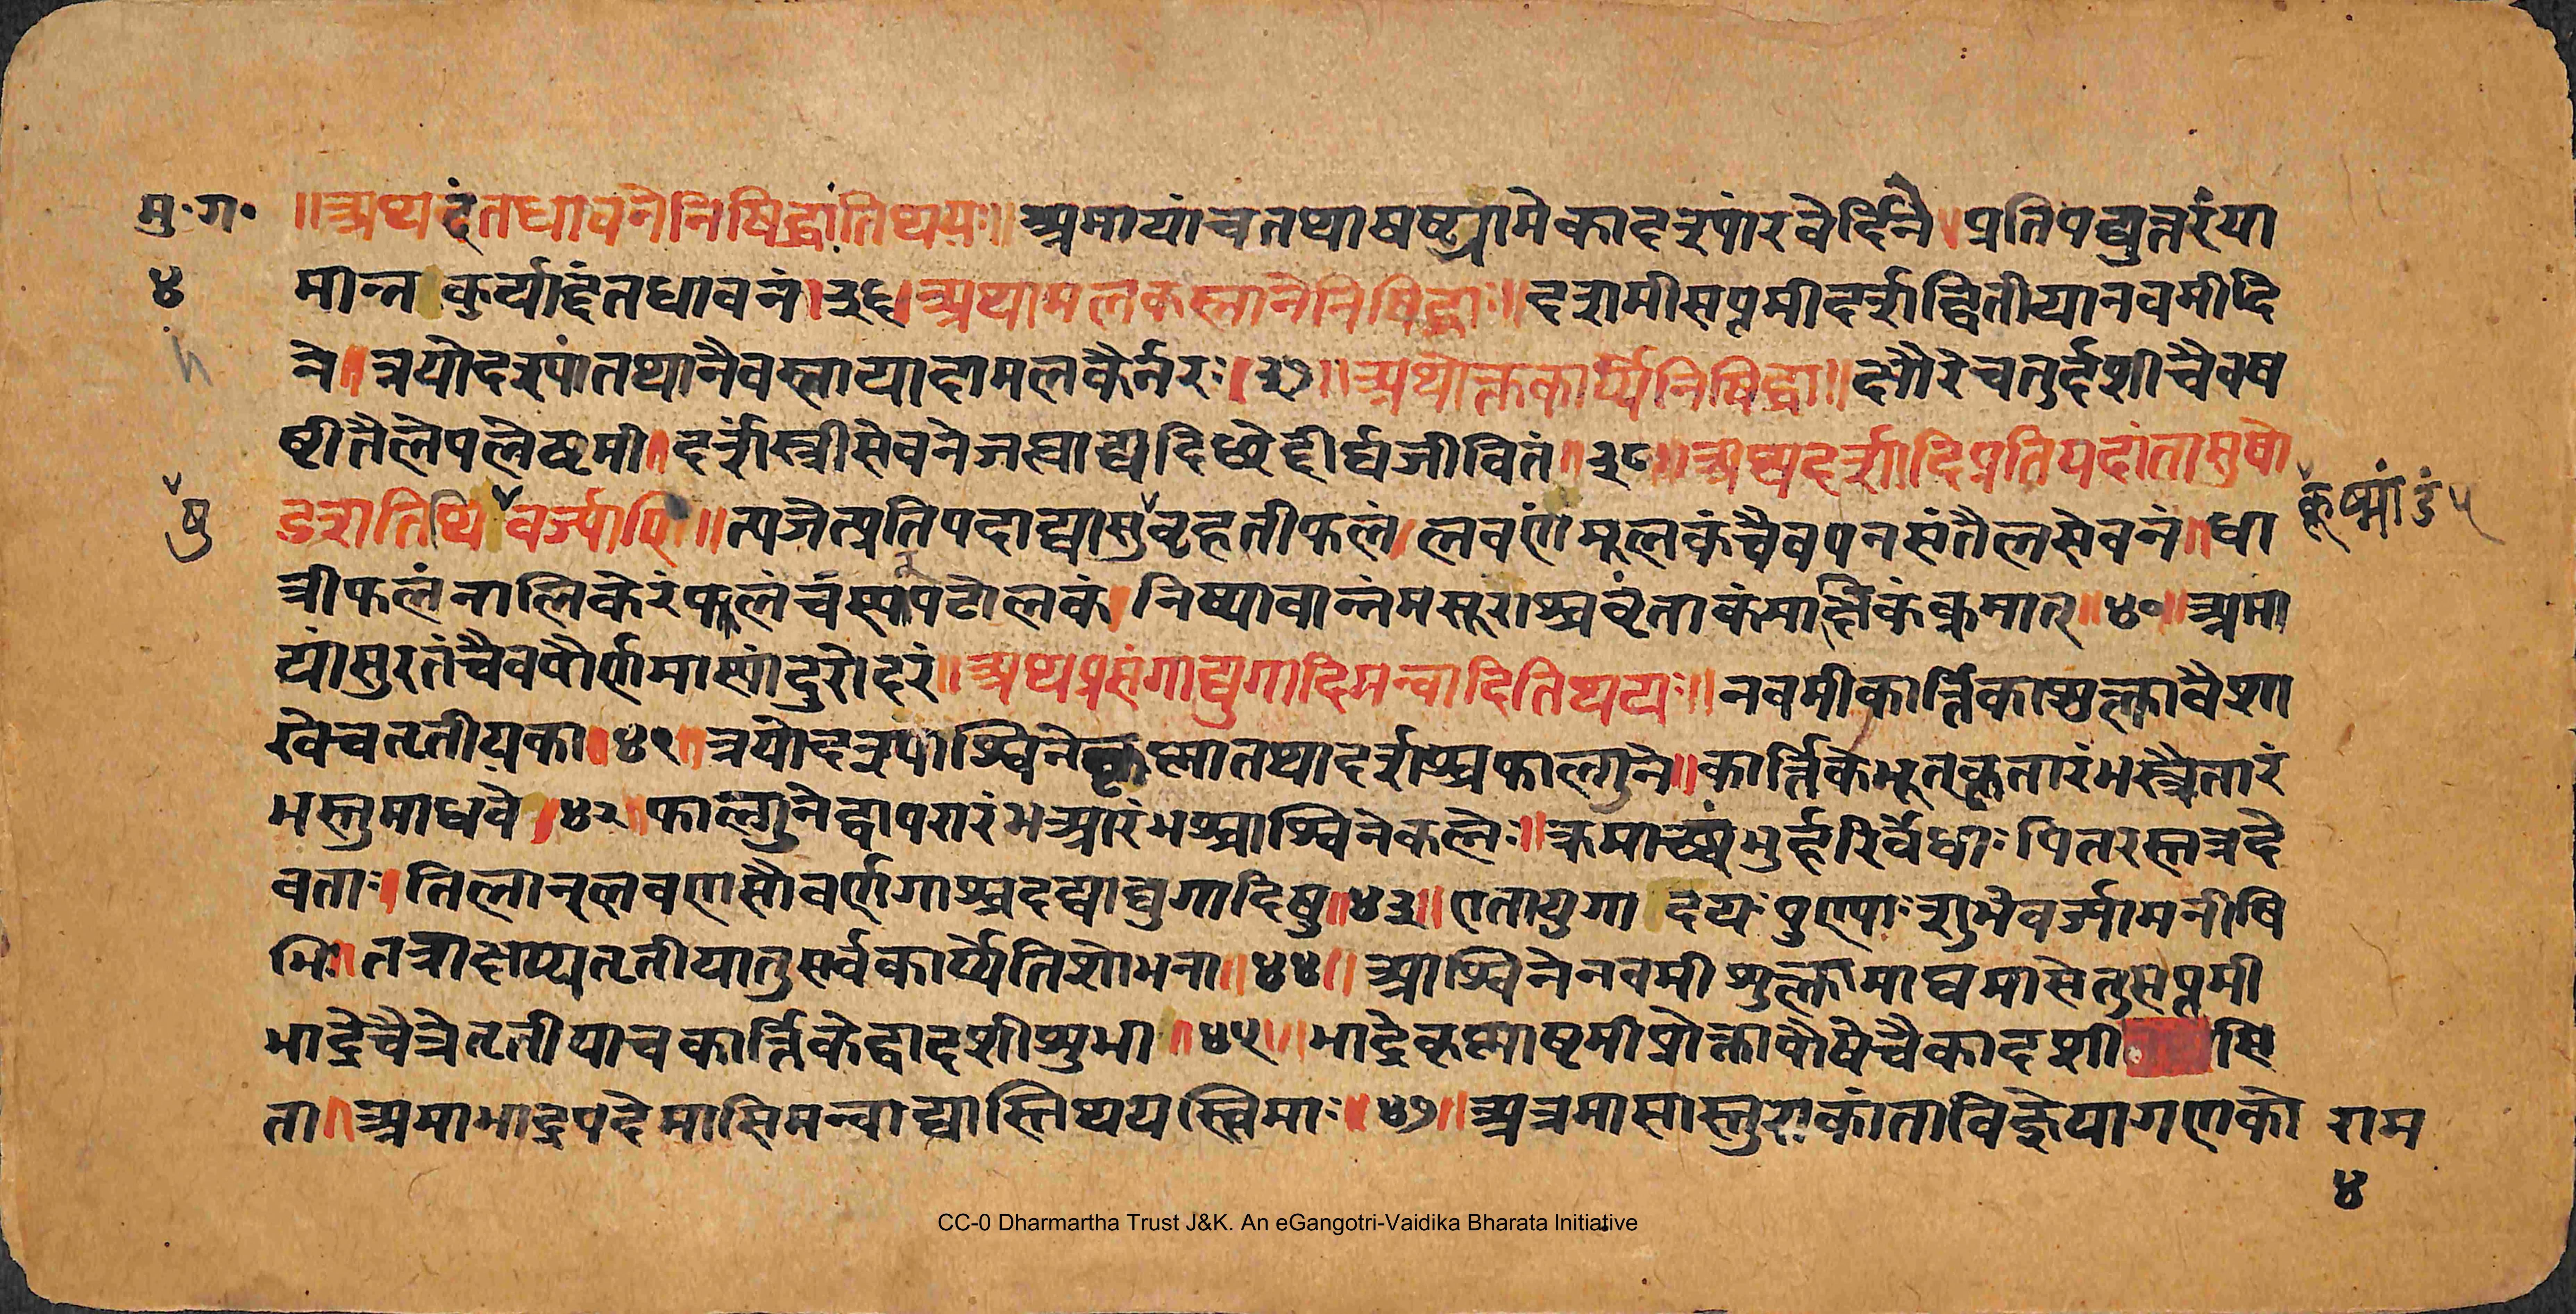 मु॰ग॰ ॥अथदंतधावनेनिषिद्धांतिथयः॥ अमायांचतथाषष्ट्यामेकादश्यांरवेर्दिने । प्रतिपद्युत्तरंया
४ मान्न कुर्याद्दंतधावनं । ३६ । अथामलकस्नानेनिषिद्धाः॥ दशमीसप्तमीदर्शद्वितीयानवमीदि
ने॥ त्रयोदश्यांतथानैवस्नायादामलकैर्नरः। ३७॥ अथोक्तकार्य्येनिषिद्धा॥ क्षौरेचतुर्दशीचैवष
ष्टीतैलेपलेष्टमी॥ दर्शस्त्रीसेवने दीर्घजीवितं॥ ३८॥ अथदर्शादिप्रतिपदांतासुषो
डशतिथि वर्ज्याणि॥ त्यजेत्प्रतिपदाद्यासुवृहतीफलं। लवणंमूलकंचैवपनसंतैलसेवनं॥ धा
षु
कूष्मांडं ५
त्रीफलंनालिकेरंफलंच पटोलकं। निष्पावान्नंमसूरांश्चवृंताकंमाक्षिकंक्रमात्॥४०॥अमा
यांसुरतंचैवपौर्णमास्यांदुरोदरं॥ अथप्रसंगाद्युगादिमन्वादितिथयः॥ नवमीकार्त्तिकाशुक्लावैशा
खेचतृतीयका॥४१॥त्रयोदश्याश्विनेकृष्णातथादर्शश्चफाल्गुने॥कार्त्तिकेभूतकृतारंभस्त्रेतारं
भस्तुमाधवे।४२॥फाल्गुनेद्वापरारंभआरंभश्चाश्विनेकलेः॥ पितरस्तत्रदे
वताः। तिलान्लवणसौवर्णगाश्चदद्याद्युगादिषु॥४३॥ एतायुगा दयः पुण्याःशुभेवर्ज्यामनीषि
भिः॥तत्राक्षाप्यतृतीयातुसर्वकार्य्येतिशोभना॥४४॥ आश्विनेनवमीशुक्लामाघमासेतुसप्तमी
भाद्रेचैत्रेतृतीयाचकार्त्तिकेद्वादशीशुभा॥४५॥ भाद्रेकृष्णाष्टमीप्रोक्तापौषेचैकादशी सि
ता॥अमाभाद्रपदेमासिमन्वाद्यास्तिथयस्त्विमाः। ४७॥ अत्रमासास्तुराकांताविज्ञेयागणको राम
४
CC-0 Dharmartha Trust J&K. An eGangotri-Vaidika Bharata Initiative